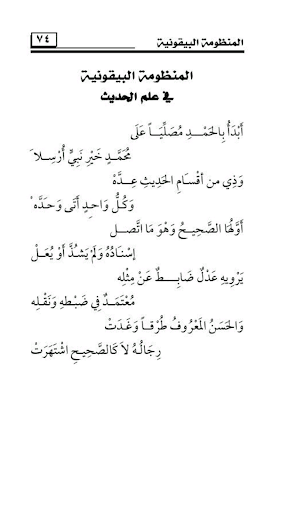 المنظومة البيقونية
٧٤
المنظومة البيقونية
في علم الحديث
أَبْدَأُ بِالحَمْـدِ مُصَلِّيَـاً عَلَى
مُحَمَّدٍ خَيْرِ نَبِيٍّ أُرْسِلاَ
وَذِي من أَقْسَامِ الحَدِيثِ عِدَّهْ
وَكُلُّ وَاحِدٍ أَتَى وَحَدَّهْ
أَوَّلُهَا الصَّحِيحُ وَهْوَ مَا اتَّصَل
إِسْنَادُهُ وَلَمْ يَشُذَّ أَوْ يُعَلْ
يَرْوِيهِ عَدْلٌ ضَابِـطٌ عَنْ مِثْلِه
مُعْتَمَدٌ فِي ضَبْطِهِ وَنَقْلِه
وَالحَسَنُ المَعْرُوفُ طُرْقَاً وَغَدَتْ
رِجَالُـهُ لاَ كَالصَّحِيحِ اشْتَهَرَتْ